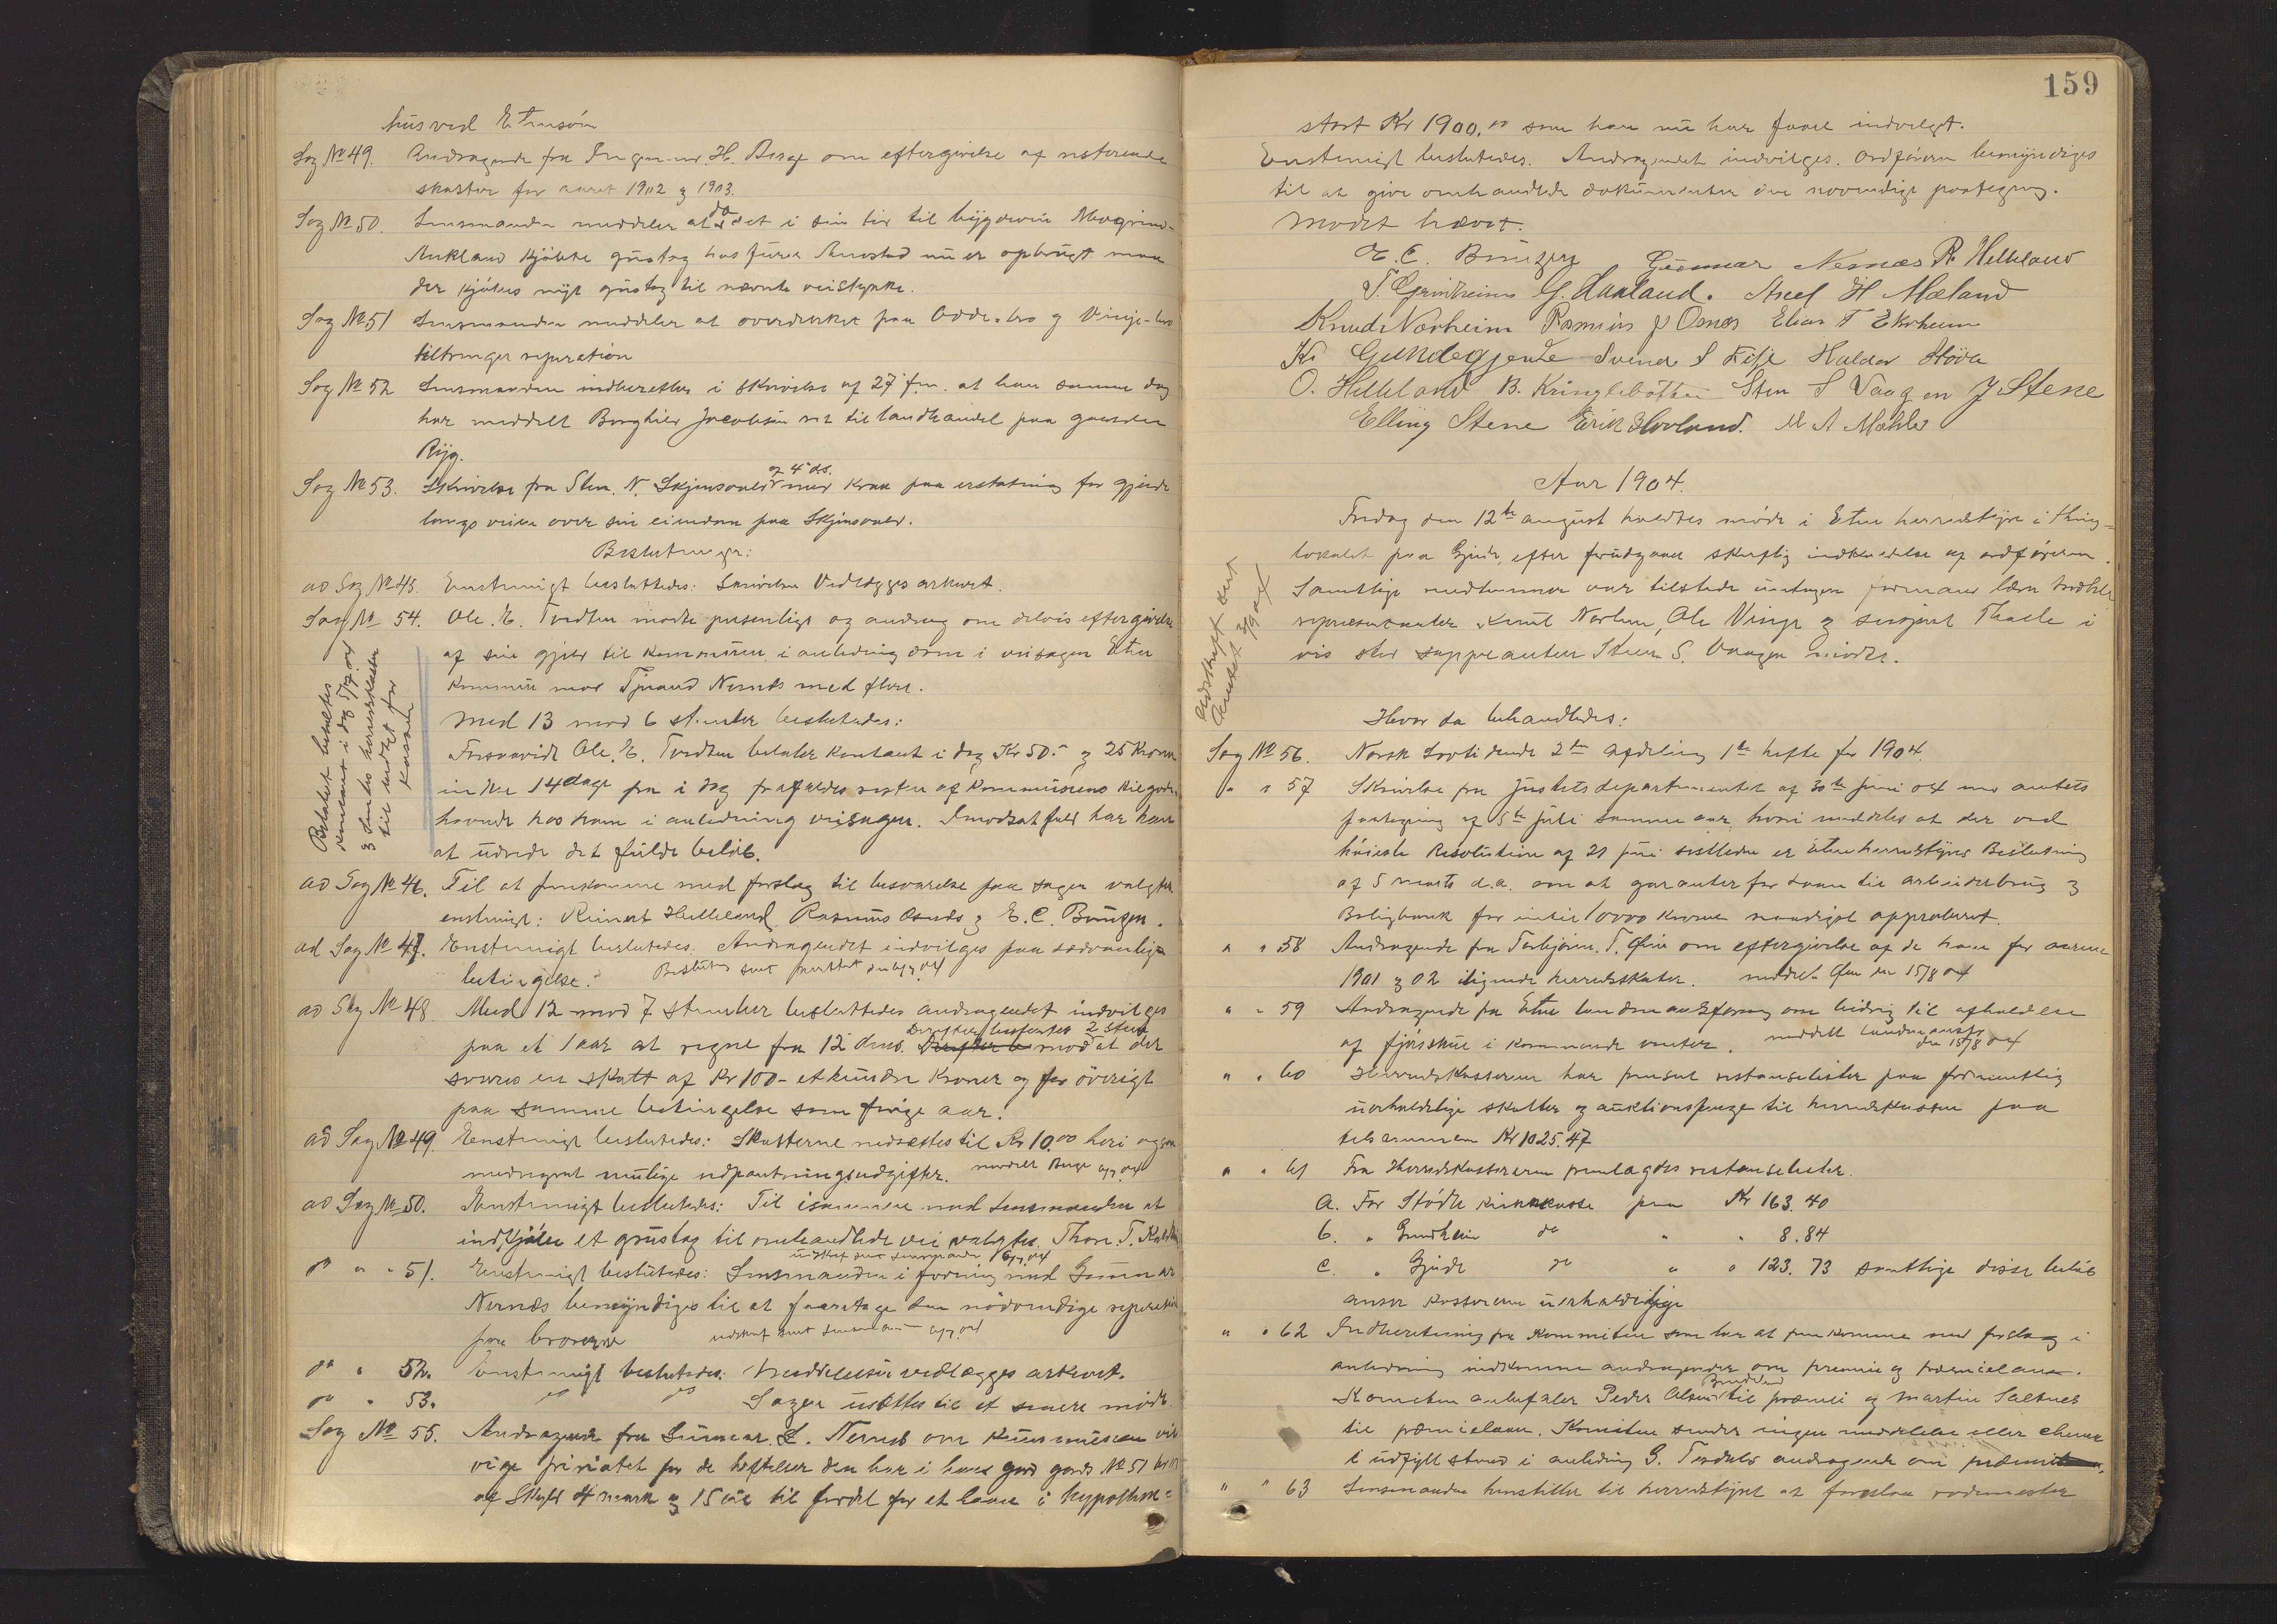 hus ved Etnesøen
Sag № 49. Andragende fra Ingeniør H. Berge om eftergivelse af resterende
skatter for aaret 1902 og 1903.
Sag № 50. Lensmanden meddeler at da det i sin tid til bygdevei
Aukland kjøbte grustag hos nu er opbrugt maa
der kjøbes nyt grustag til nævnte veistykke.
Sag № 51 Lensmanden meddeler at overdækket paa Odde-bro og Vinje-bro
tiltrænger reparation
Sag № 52 Lensmanden indberetter i skrivelse af 27 fm. at han samme dag
har meddelt Borghild Jacobsen ret til landhandel paa gaarden
Ryg.
Sag № 53. Skrivelse fra Sten N. Skjensvold af 4 ds. med krav paa erstatning for gjerde
langs veien over sin eiendom paa Skjensvold.
Beslutninger:
ad Sag № 45. Enstemigt besluttedes: Skrivelsen vedlægges arkivet.
Sag № 54. Ole. E. Tvedten mødte personligt og androg om delvis eftergivelse
af sin gjæld til kommunen i anledning dom i veisagen Etne
kommune mod Tjerand Nernes med flere.
Med 13 mod 6 stemmer besluttedes:
Forsaavidt Ole. E. Tvedten betaler kontant i dag Kr 50.- og 25 kroner
inden 14 dage fra i dag frafaldes resten af kommunens tilgode-
havende hos ham i anledning veisagen. I modsat fald har han
at udrede det fulde beløb.
Beløbet betaltes
kontant i dag 5/7.04
Lentes herredskasserer
til indtægt for
kassen
ad Sag № 46. Til at fremkomme med forslag til besvarelse paa sagen valgtes
enstemigt: Reinert Helleland, Rasmus Osnes og E. C. Bünger.
ad Sag № 47. Enstemigt besluttedes: Andragendet indvilges paa sædvanlige
betingelse.
ad Sag № 48 Med 12 mod 7 stemmer besluttedes andragendet indvilges
paa et 1 aar at regne fra 12 dms. mod at der
svares en skatt af Kr 100- et hundre kroner og for øvrigt
paa samme betingelse som forige aar.
ad Sag № 49. Enstemigt besluttedes: Skatterne nedsættes til Kr 10.00 heri ogsaa
medregnet mulige udpantningsudgifter. meddelt Berge
ad Sag № 50. Enstemigt besluttedes: Til isammen med Lensmanden at
indkjøbe et grustag til omhandlede vei valgtes Thore T.
do " " 51. Enstemigt besluttedes: Lensmanden i forening med Gunnar
Nernes bemyndiges til at foretage den nødvendige reparation
paa broerne
do " 52. Enstemigt besluttedes: Meddelelsen vedlægges arkivet.
do " 53. do do Sagen udsættes til et senere møde
Sag № 55. Andragende fra Gunnar L. Nernes om kommunen vil
vige prioritet for de heftelser den har i hans gaard gards № 51
af skyld 4 mark og 15 øre til fordel for et laan i hypothek=
159
stort Kr 1900.00 som han nu har faaet indvilget.
Enstemigt besluttedes. Andragendet indvilges. Ordføreren bemyndiges
til at give omhandlede dokumenter den nødvendige paategning.
Mødet hævet.
E. C. Bünger Gunnar Nernæs R. Helleland
T. Grindheim G. Haaland. Axel H Mæland
Knud Norheim Rasmus J Osnes Elias T Ekrheim
Kr Gundegjerde Svend S Fitje Haldor Høva
O. Helleland B. Kringlebotten Sten S Vaagen J. Stene
Elling Stene Erik Hovland. M A Mæhle
Aar 1904.
Fredag den 12te august holdtes møde i Etne herredstyre i thing-
lokalet paa Gjerde, efter forudgaaet skriftlig indkaldelse af ordføreren.
Samtlige medlemmer var tilstede undtagen formand
repræsentanter Knut Norheim, Ole Vinje og Thaele i
vis sted suppleanten Steen S. Vaagen mødte.
Udskrift sent
Amtet 3/9 04
Hvor da behandledes:
Sag № 56. Norsk Lovtidende 2den afdeling 1ste hefte for 1904.
" " 57 Skrivelse fra Justitsdepartementet af 30te juni 04 med amtets
paategning af 5te juli samme aar, hvori meddeles at der ved
høieste Resolution af 21 juni sistleden er Etne herredstyres Beslutning
af 5 marts d.a. om at garanter for laan til arbeiderbrug og
Boligbank for intil 10000 kroner naadigst approberet.
" " 58 Andragende fra Torbjørn T. Øien om eftergivelse af de ham for aarene
1901 og 02 ilignede herredskatter. meddelt Øien den 15/8 04
" " 59 Andragende fra Etne landmandsforening om bidrag til afholdelse
af fjøsskue i kommende vinter. meddelt Landmandsf. den 15/8 04
" " 60 Herredskassereren har fremsat restanselister paa formentlig
uerholdelige skatter og auktionspenge til herredskassen paa
tilsammen Kr 1025.47
" " 61 Fra Herredskassereren fremlagdes restanselister.
a. For Stødle kirkekasse paa Kr 163.40
b. " Grindheim do " " 8.84
c. " Gjerde do " " 123.73 samtlige disse beløb
anser kassereren uerholdelige
" " 62 Indberetning fra Komiteen som har at fremkomme med forslag i
anledning indkomne andragender om premie og præmielaan.
Komiteen anbefaler Peder Olsen til præmie og Martin Saltnes
til præmielaan. Komiteen sender ingen meddelelse eller
i udfyllt stand i anledning G. Tesdals andragende om præmie
" " 63 Lensmanden henstiller til herredstyret at foreslaa rodemester